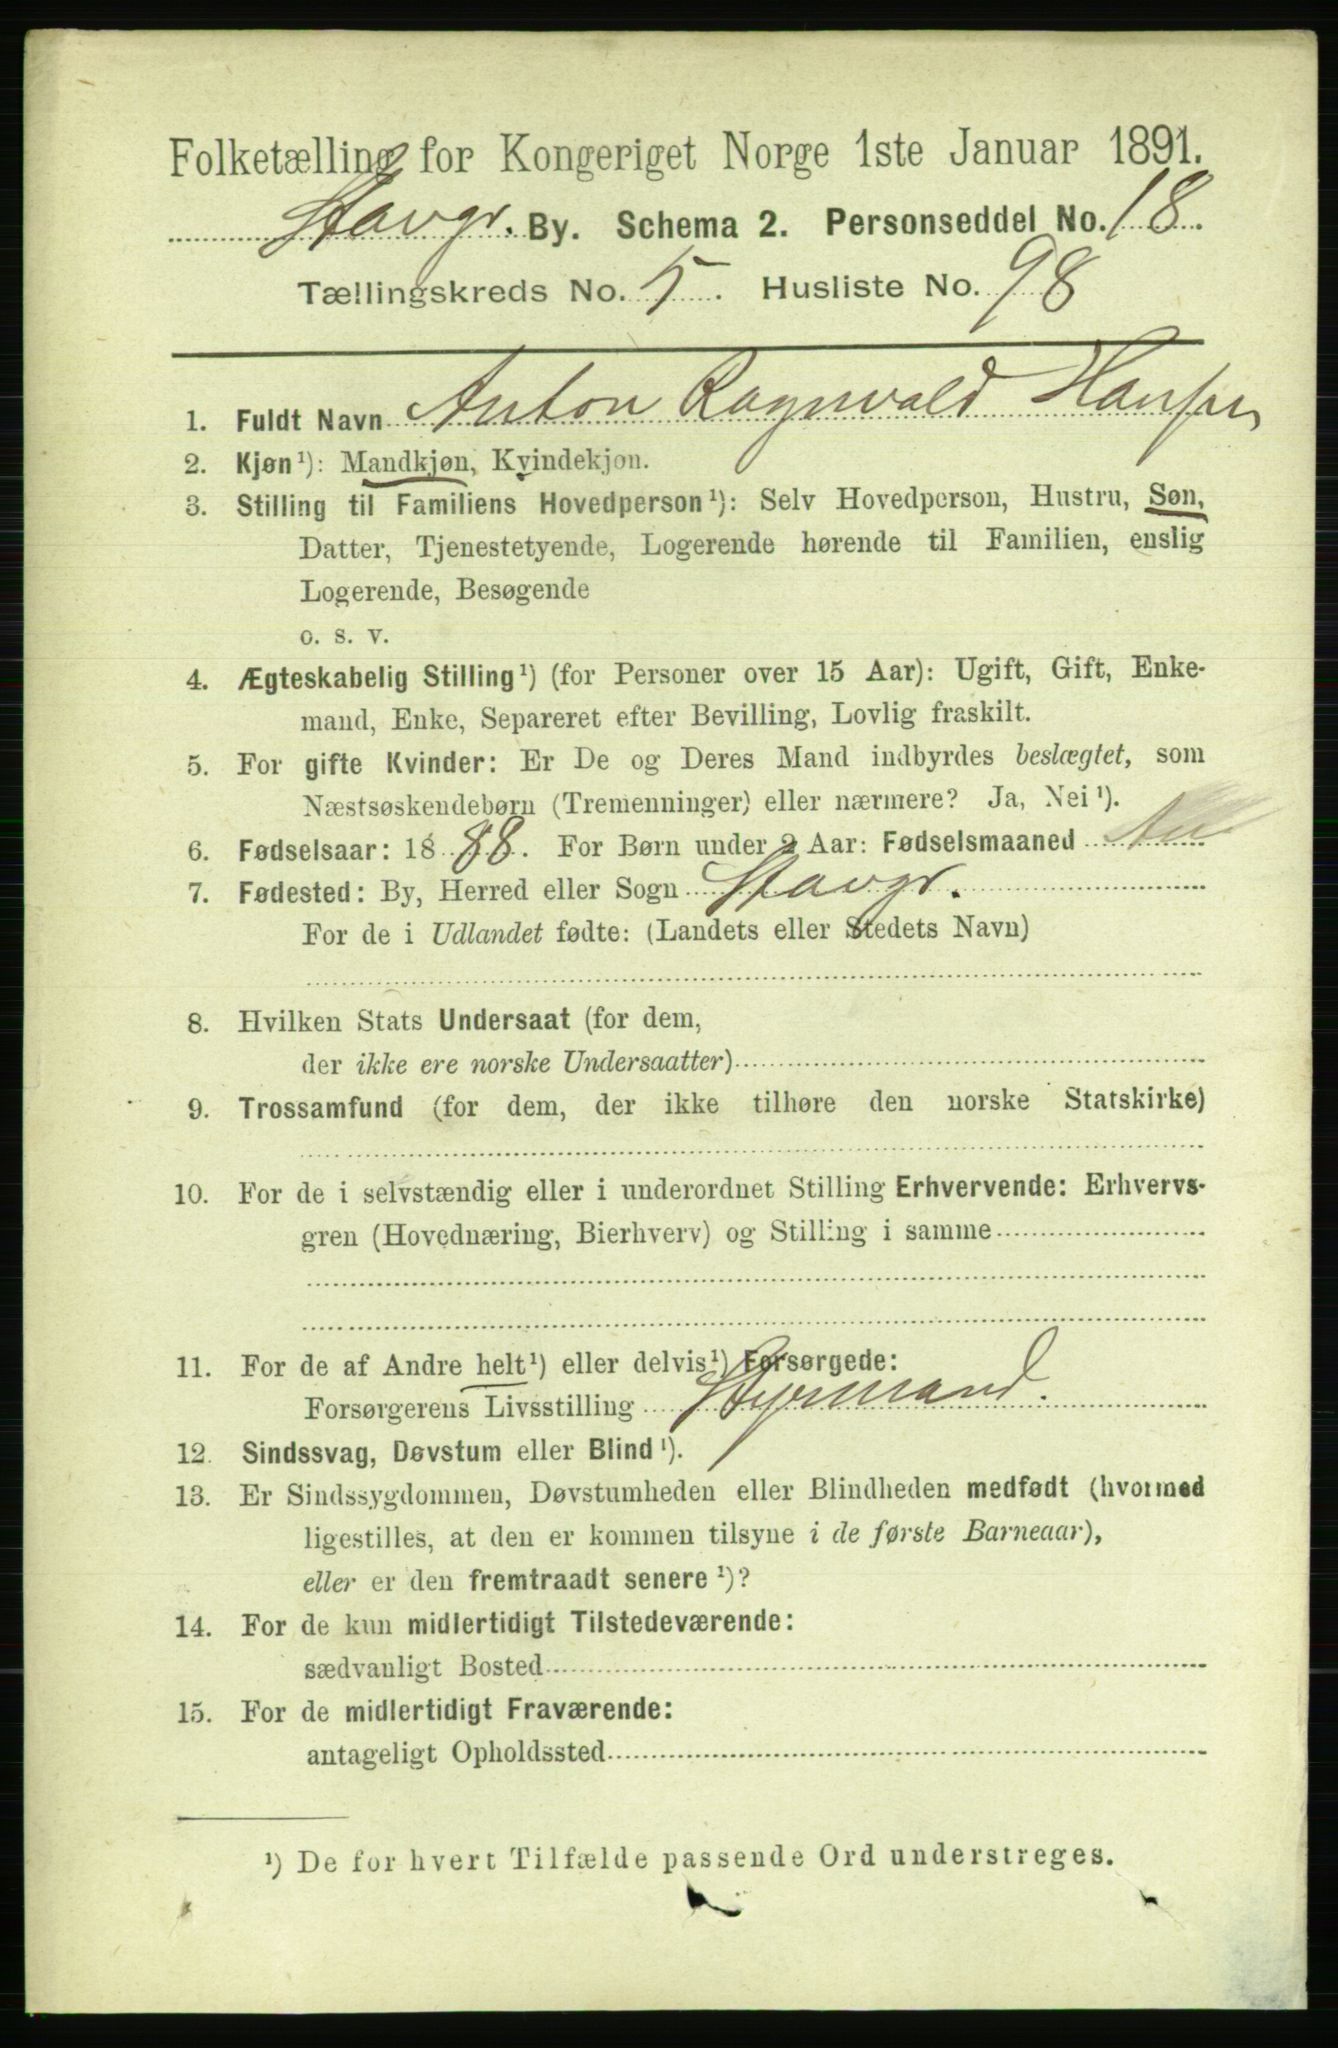 Folketælling for Kongeriget Norge 1ste Januar 1891.
Stavgr. By. Schema 2. Personseddel No. 18.
Tællingskreds No. 5. Husliste No. 98
1. Fuldt Navn Anton Ragnvald Hansen
2. Kjøn ¹): Mandkjøn, Kvindekjøn.
3. Stilling til Familiens Hovedperson ¹): Selv Hovedperson, Hustru, Søn,
Datter, Tjenestetyende, Logerende hørende til Familien, enslig
Logerende, Besøgende
o. s. v.
4. Ægteskabelig Stilling ¹) (for Personer over 15 Aar): Ugift, Gift, Enke-
mand, Enke, Separeret efter Bevilling, Lovlig fraskilt.
5. For gifte Kvinder: Er De og Deres Mand indbyrdes beslægtet, som
Næstsøskendebørn (Tremenninger) eller nærmere? Ja, Nei ¹).
6. Fødselsaar: 1888. For Børn under 2 Aar: Fødselsmaaned
7. Fødested: By, Herred eller Sogn Stavgr.
For de i Udlandet fødte: (Landets eller Stedets Navn)
8. Hvilken Stats Undersaat (for dem,
der ikke ere norske Undersaatter)
9. Trossamfund (for dem, der ikke tilhøre den norske Statskirke)
10. For de i selvstændig eller i underordnet Stilling Erhvervende: Erhvervs-
gren (Hovednæring, Bierhverv) og Stilling i samme
11. For de af Andre helt ¹) eller delvis ¹) Forsørgede:
Forsørgerens Livsstilling Styrmand.
12. Sindssvag, Døvstum eller Blind ¹).
13. Er Sindssygdommen, Døvstumheden eller Blindheden medfødt (hvormed
ligestilles, at den er kommen tilsyne i de første Barneaar),
eller er den fremtraadt senere ¹)?
14. For de kun midlertidigt Tilstedeværende:
sædvanligt Bosted
15. For de midlertidigt Fraværende:
antageligt Opholdssted
¹) De for hvert Tilfælde passende Ord understreges.